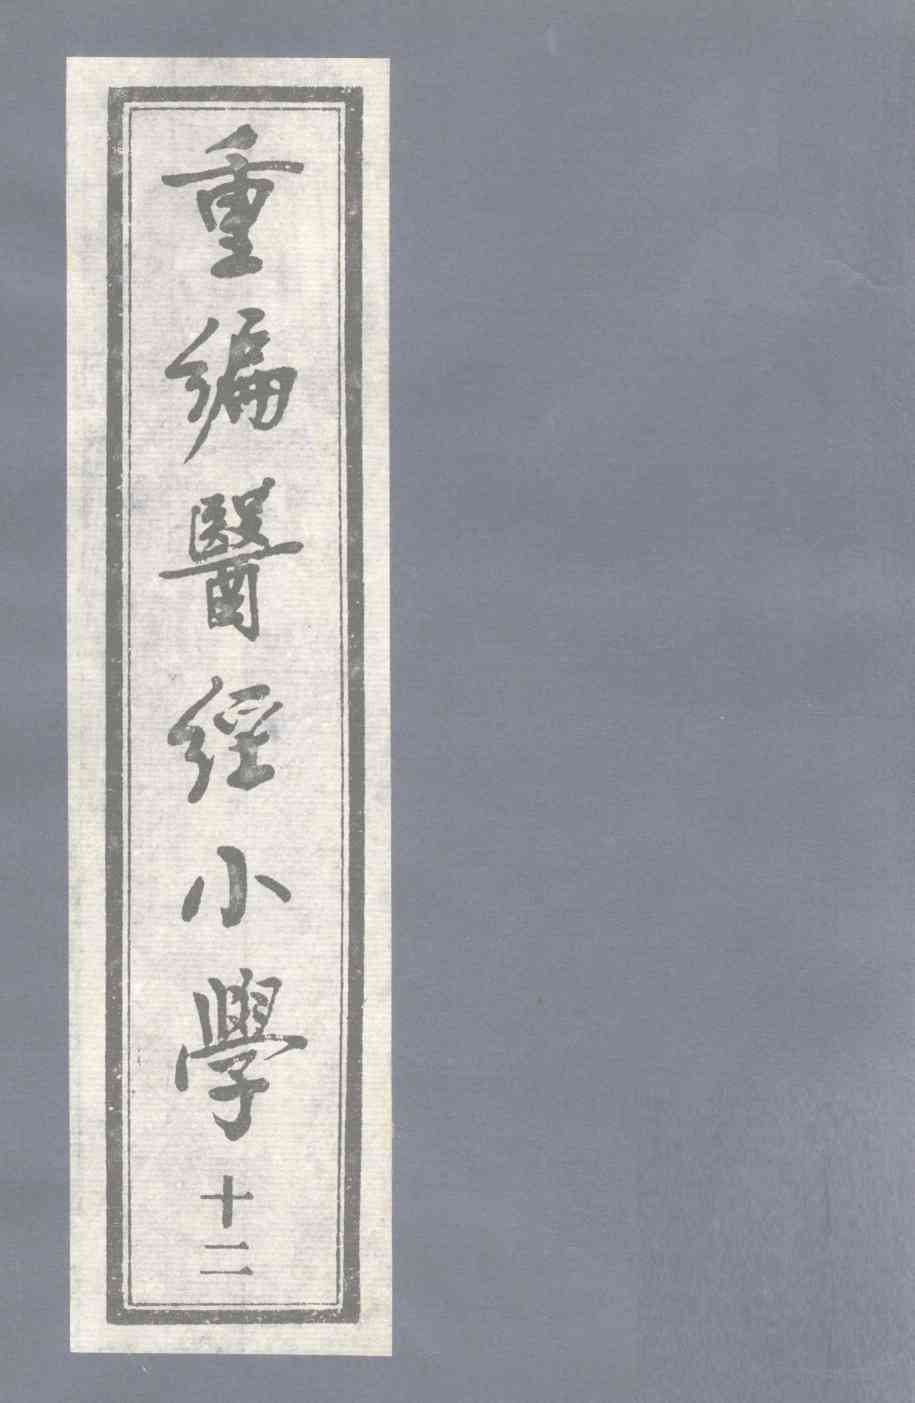 重編醫經小學
十二